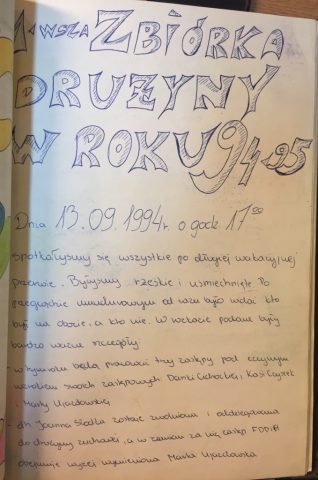 1-WSZA ZBIÓRKA
DRUŻYNY
W ROKU 94-95
Dnia 13.09.1994r. o godz 17⁰⁰
spotkałyśmy się wszystkie po długiej wakacyjnej
przerwie. Byłyśmy rześkie i uśmiechnięte. Po
przegrodzie umundurowanym od razu było widać kto
był na obozie, a kto nie. W rozkazie podane były
bardzo ważne szczegóły
- w tym roku będą pracować trzy zastępy pod czujnym
wzrokiem swoich zastępowych Danki Cichockiej, Kasi
i Marty Ujazdowskiej
- dh. Joanna zostaje zwolniona i oddelegowana
do drużyny zuchenek, a w zamian za nią zastęp
obejmuje wyżej wymieniona Marta Ujazdowska